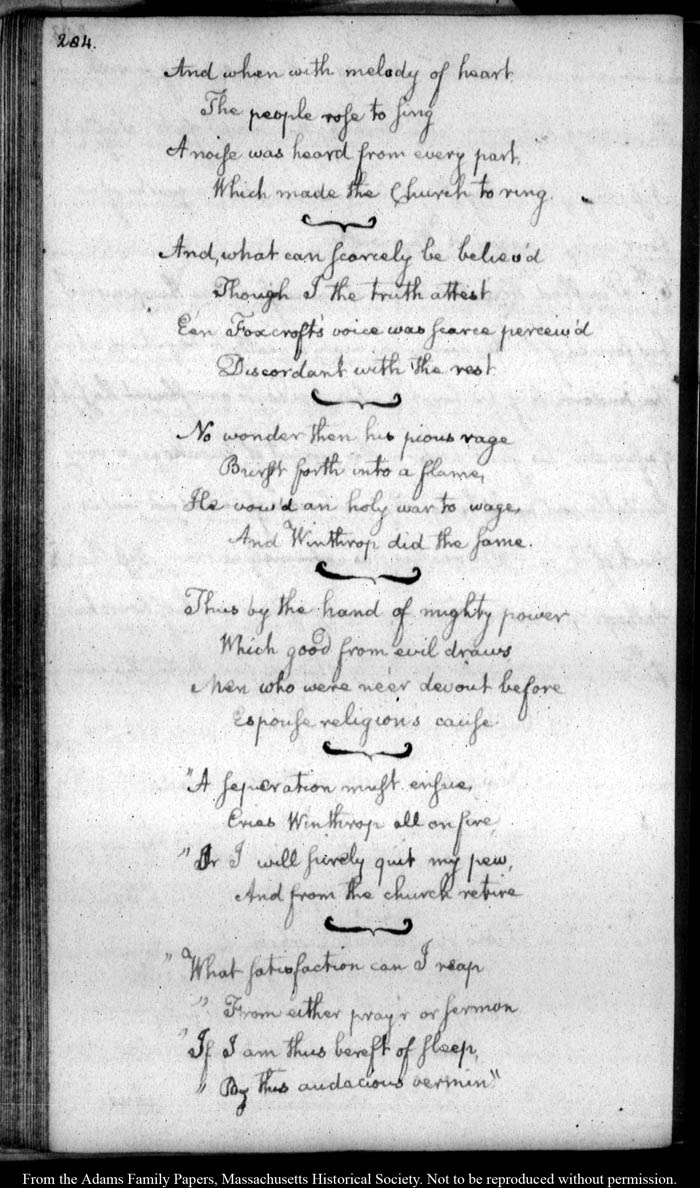 284.
And when with melody of heart
The people rose to sing
A noise was heard from every part,
Which made the Church to ring.
And, what can scarcely be believ'd
Though I the truth attest
E'en Foxcroft's voice was scarce perceiv'd
Discordant with the rest
No wonder then his pious rage
Burst forth into a flame,
He vow'd an holy war to wage,
And Winthrop did the same.
Thus by the hand of mighty power
Which good from evil draws
Men who were ne'er devout before
Espouse religion's cause.
"A seperation must ensue,
Cries Winthrop all on fire,
"Or I will surely quit my pew,
And from the church retire
"What satisfaction can I reap
"From either pray'r or sermon
"If I am thus bereft of sleep,
"By this audacious vermin"
From the Adams Family Papers, Massachusetts Historical Society. Not to be reproduced without permission.